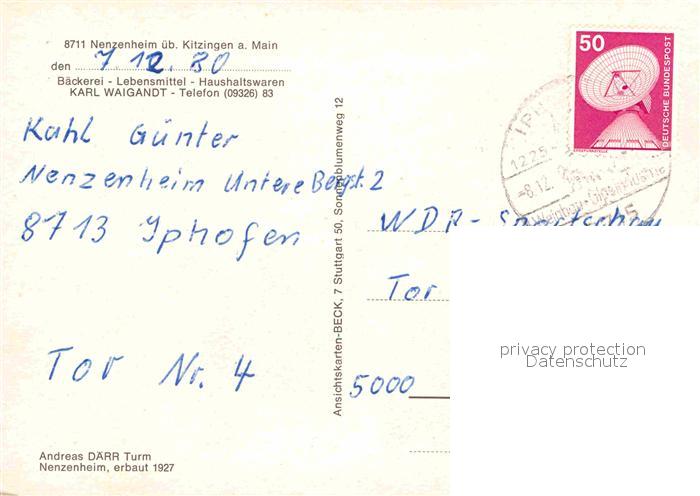 8711 Nenzenheim üb. Kitzingen a. Main
den 7.12.80
Bäckerei - Lebensmittel - Haushaltswaren
KARL WAIGANDT - Telefon (09326) 83
Kahl Günter
Nenzenheim Untere Bergst. 2
8713 Iphofen
Tor Nr. 4
Andreas DÄRR Turm
Nenzenheim, erbaut 1927
Ansichtskarten-BECK, 7 Stuttgart 50, Sonnenblumenweg 12
50
DEUTSCHE BUNDESPOST
IPH
1225-
-8.12.
WDR - Sportschau
Tor
5000
privacy protection
Datenschutz